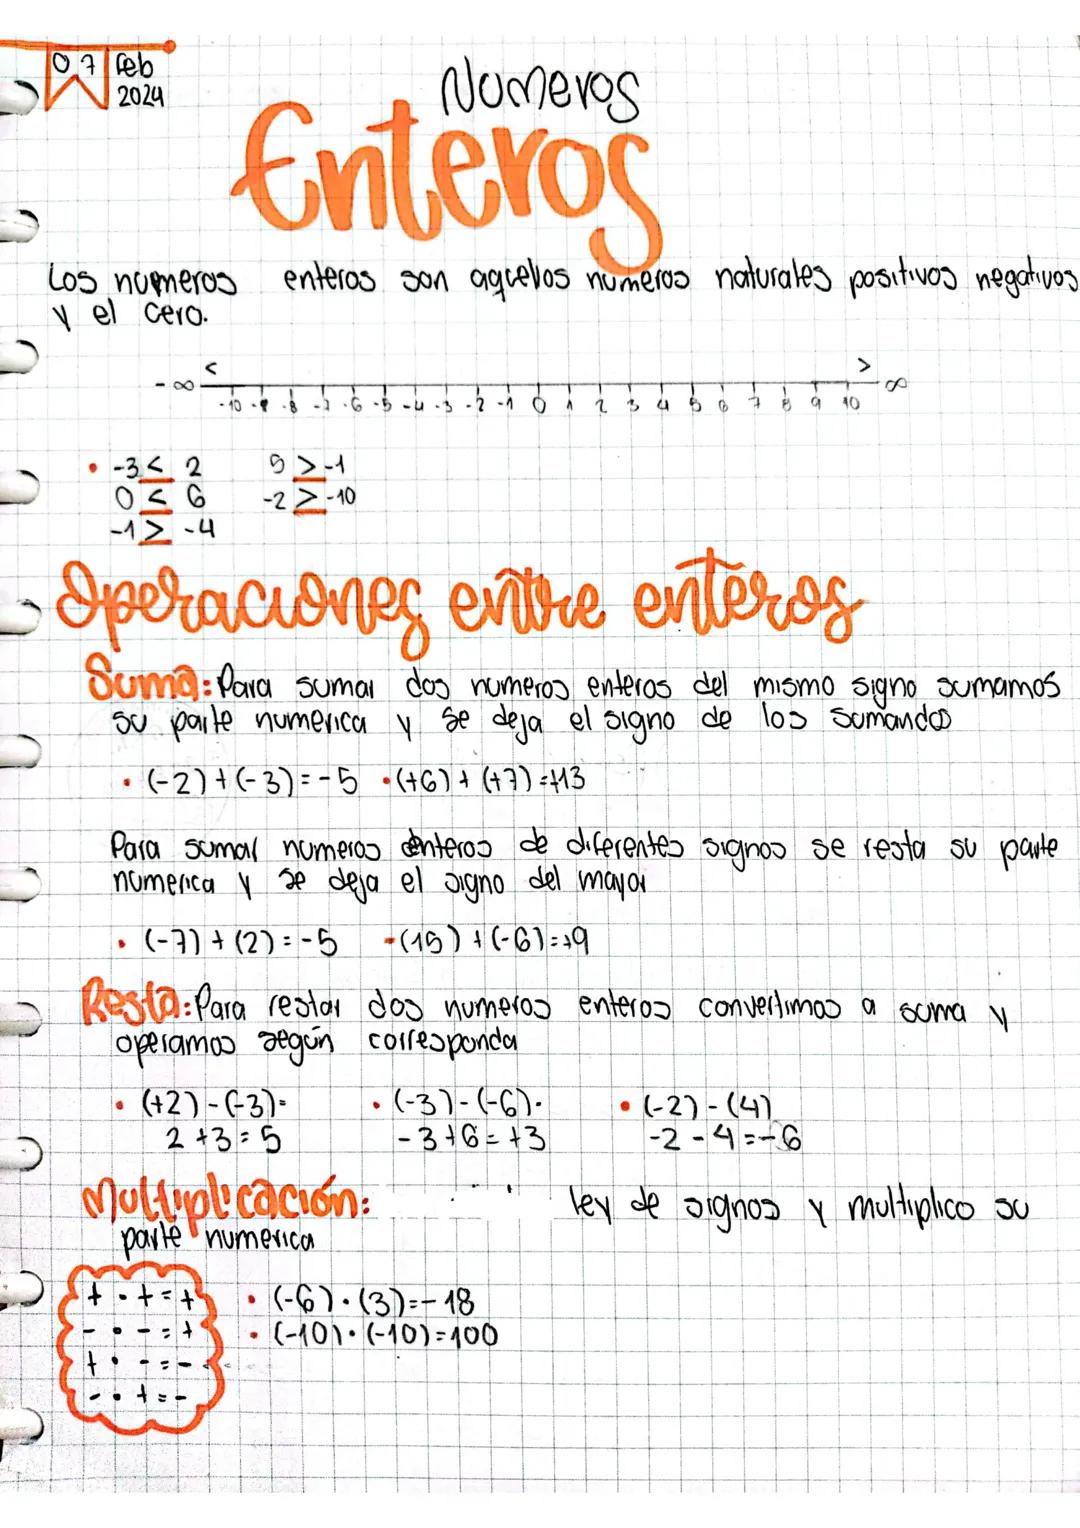 07 feb
2024
Numeros
Enteros
Los numeros enteros son aquellos numeros naturales positivos negativos
y el cero.
< >
-∞ ∞
-10 -9 -8 -7 -6 -5 -4 -3 -2 -1 0 1 2 3 4 5 6 7 8 9 10
• -3 < 2 5 > -1
0 < 6 -2 > -10
-1 > -4
Operaciones entre enteros
Suma: Para sumar dos numeros enteros del mismo signo sumamos
su parte numerica y se deja el signo de los sumandos
• (-2) + (-3) = -5 • (+6) + (+7) = +13
Para sumar numeros enteros de diferentes signos se resta su parte
numerica y se deja el signo del mayor
• (-7) + (2) = -5 • (15) + (-6) = +9
Resta: Para restar dos numeros enteros convertimos a suma y
operamos según corresponda
• (+2) - (-3) = • (-3) - (-6) • • (-2) - (4)
2 + 3 = 5 -3 + 6 = +3 -2 - 4 = -6
Multiplicación: ley de signos y multiplico su
parte numerica
+ • + = + • (-6) • (3) = -18
- • - = + • (-10) • (-10) = 100
+ • - = -
- • + = -